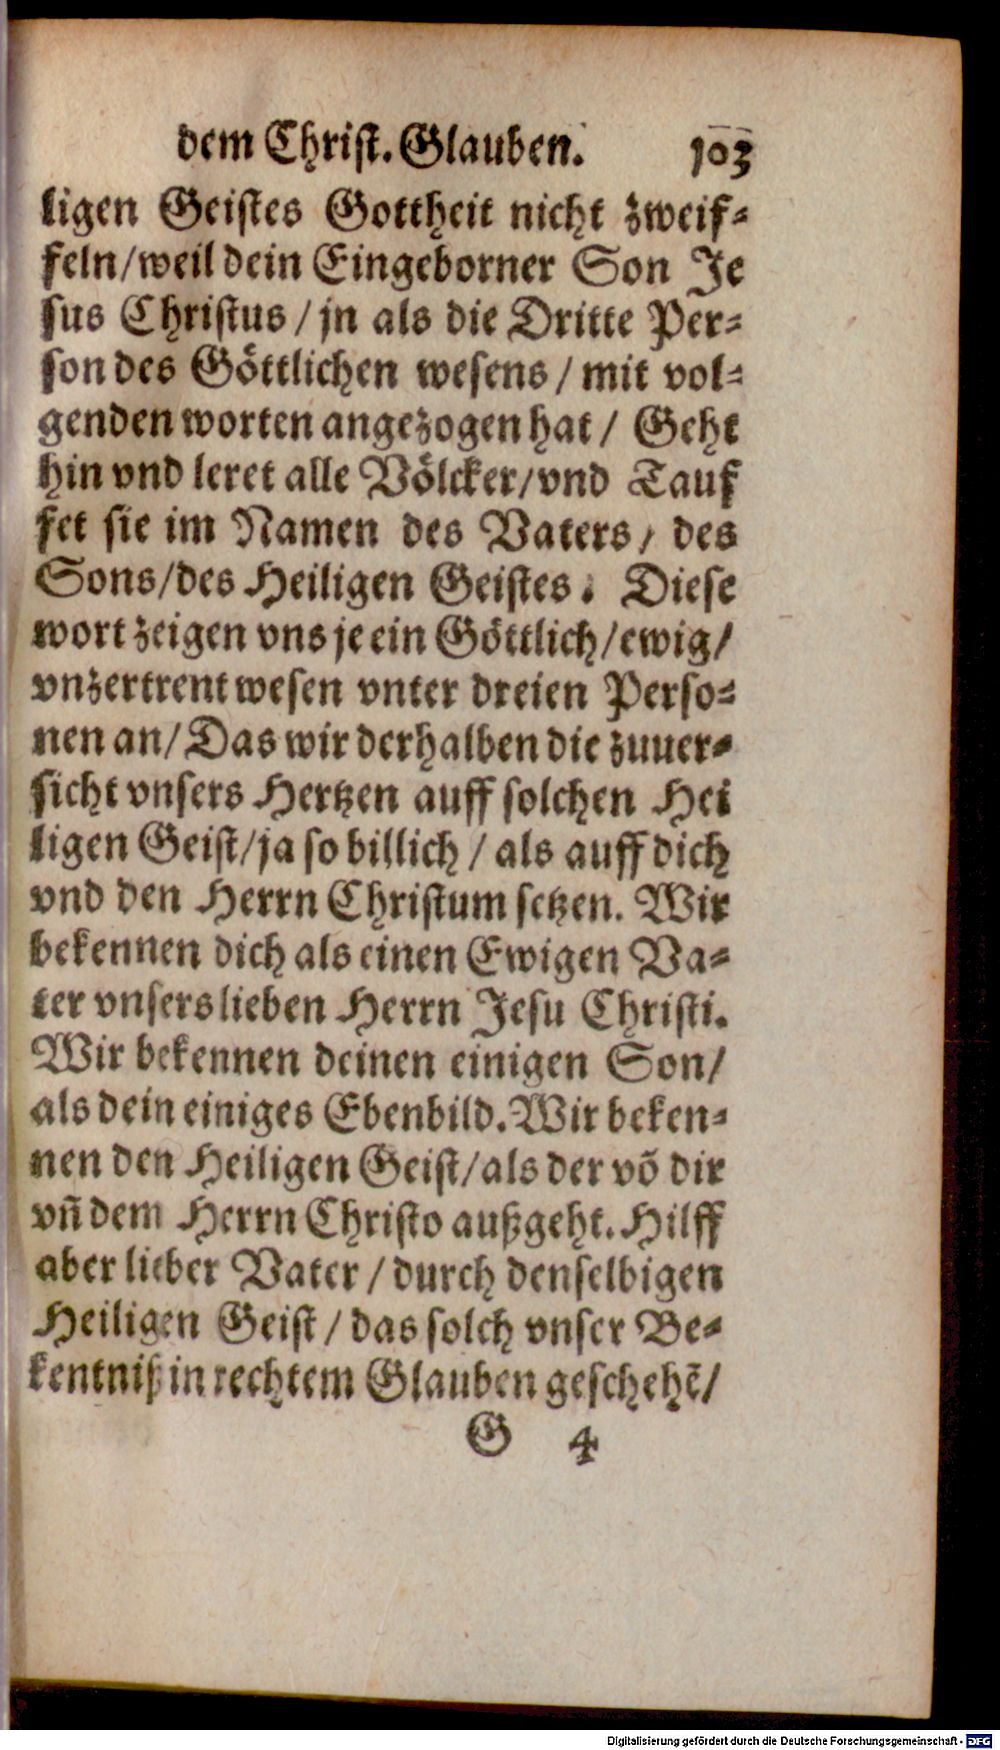 dem Christ. Glauben. 103
ligen Geistes Gottheit nicht zweif-
feln/weil dein Eingeborner Son Je
sus Christus / jn als die Dritte Per-
son des Göttlichen wesens / mit vol-
genden worten angezogen hat / Geht
hin vnd leret alle Völcker/vnd Tauf
fet sie im Namen des Vaters/ des
Sons/des Heiligen Geistes. Diese
wort zeigen vns je ein Göttlich/ewig/
vnzertrent wesen vnter dreien Perso-
nen an/Das wir derhalben die zuuer-
sicht vnsers Hertzen auff solchen Hei
ligen Geist/ja so billich / als auff dich
vnd den Herrn Christum setzen. Wir
bekennen dich als einen Ewigen Va-
ter vnsers lieben Herrn Jesu Christi.
Wir bekennen deinen einigen Son/
als dein einiges Ebenbild. Wir beken-
nen den Heiligen Geist/als der võ dir
vñ dem Herrn Christo außgeht. Hilff
aber lieber Vater / durch denselbigen
Heiligen Geist / das solch vnser Be-
kentniß in rechtem Glauben geschehẽ/
G 4
Digitalisierung gefördert durch die Deutsche Forschungsgemeinschaft - DFG